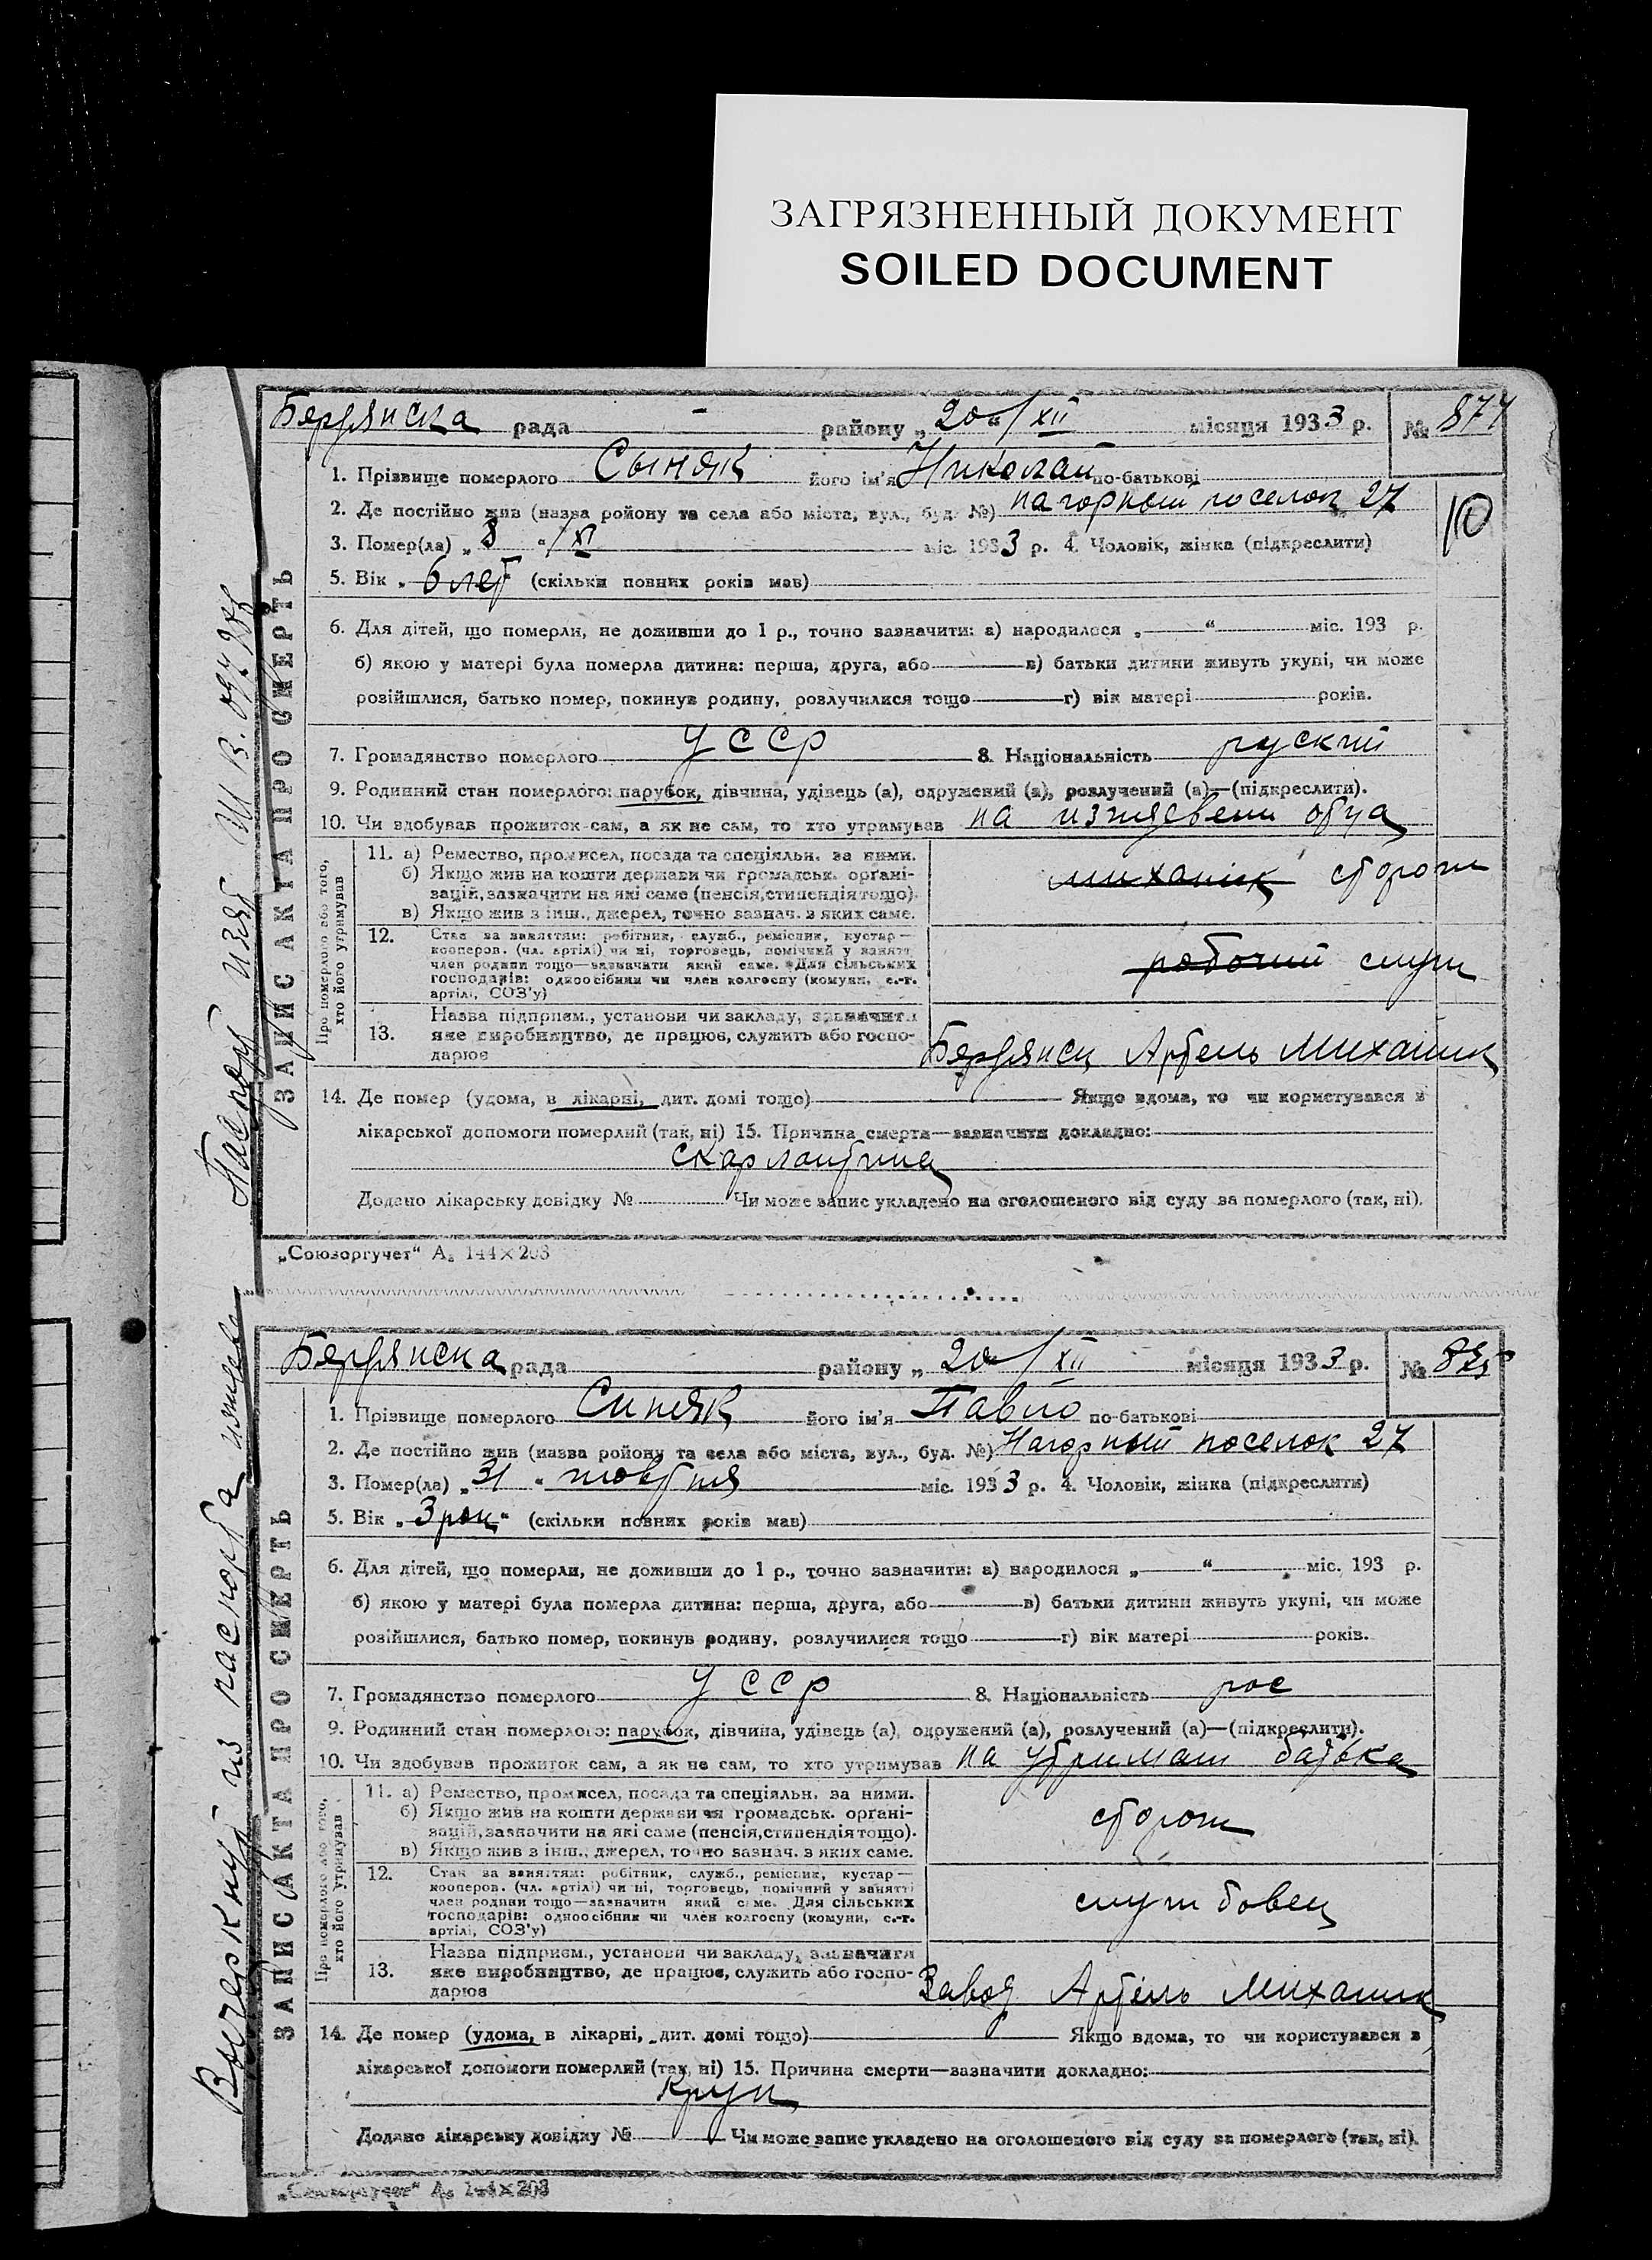 ЗАГРЯЗНЕННЫЙ ДОКУМЕНТ
SOILED DOCUMENT
Бердянска рада - району „20“/XII місяця 1933 р. № 874
1. Прізвище померлого Сыняк його ім'я Николай по-батькові
10
2. Де постійно жив (назва ройону та села або міста, вул., буд. №) нагорный поселок 27
3. Помер(ла) „8“/XI міс. 1933 р. 4. Чоловік, жінка (підкреслити)
5. Вік „6 лет (скільки повних років мав)
6. Для дітей, що померли, не доживши до 1 р., точно зазначити: а) народилося „ “ міс. 193 р.
б) якою у матері була померла дитина: перша, друга, або в) батьки дитини живуть укупі, чи може
розійшлися, батько помер, покинув родину, розлучилися тощо г) вік матері років.
7. Громадянство померлого УССР 8. Національність руский
9. Родинний стан померлого: парубок, дівчина, удівець (а), одружений (а), розлучений (а)—(підкреслити).
10. Чи здобував прожиток сам, а як не сам, то хто утримував на иждевени отца
ЗАПИС АКТА ПРО СМЕРТЬ
Про померлого або того, хто його утримував
11. а) Ремество, промисел, посада та спеціяльн. за ними.
б) Якщо жив на кошти держави чи громадськ. органі-
зацій, зазначити на які саме (пенсія, стипендія тощо).
в) Якщо жив з інш., джерел, точно зазнач. з яких саме.
миханик сторож
12. Стан за заняттям: робітник, служб., ремісник, кустар—
кооперов. (чл. артілі) чи ні, торговець, помічний у занятті
член родини тощо—зазначити який саме. Для сільських
господарів: одноосібник чи член колгоспу (комуни, с.-г.
артілі, СОЗ'у)
рабочий служ
Назва підприєм., установи чи закладу, зазначити
13. яке виробництво, де працює, служить або госпо-
дарює
Бердянск Артель Миханик
14. Де помер (удома, в лікарні, дит. домі тощо) Якщо вдома, то чи користувався з
лікарської допомоги померлий (так, ні) 15. Причина смерти—зазначити докладно:
скарлантина
Додано лікарську довідку № Чи може запис укладено на оголошеного від суду за померлого (так, ні).
„Союзоргучет“ А₅ 144×203
Бердянска рада району „20“/XII місяця 1933 р. №
1. Прізвище померлого Синяк його ім'я Павло по-батькові
2. Де постійно жив (назва ройону та села або міста, вул., буд. №) Нагорный поселок 27
3. Помер(ла) „31“ жовтня міс. 1933 р. 4. Чоловік, жінка (підкреслити)
5. Вік „3 рок“ (скільки повних років мав)
6. Для дітей, що померли, не доживши до 1 р., точно зазначити: а) народилося „ “ міс. 193 р.
б) якою у матері була померла дитина: перша, друга, або в) батьки дитини живуть укупі, чи може
розійшлися, батько помер, покинув родину, розлучилися тощо г) вік матері років.
7. Громадянство померлого УССР 8. Національність рос
9. Родинний стан померлого: парубок, дівчина, удівець (а), одружений (а), розлучений (а)—(підкреслити).
10. Чи здобував прожиток сам, а як не сам, то хто утримував на утримані батька
ЗАПИС АКТА ПРО СМЕРТЬ
Про померлого або того, хто його утримував
11. а) Ремество, промисел, посада та спеціяльн. за ними.
б) Якщо жив на кошти держави чи громадськ. органі-
зацій, зазначити на які саме (пенсія, стипендія тощо).
в) Якщо жив з інш., джерел, точно зазнач. з яких саме.
сторож
12. Стан за заняттям: робітник, служб., ремісник, кустар—
кооперов. (чл. артілі) чи ні, торговець, помічний у занятті
член родини тощо—зазначити який саме. Для сільських
господарів: одноосібник чи член колгоспу (комуни, с.-г.
артілі, СОЗ'у)
службовец
Назва підприєм., установи чи закладу, зазначити
13. яке виробництво, де працює, служить або госпо-
дарює
Завод Артель Миханик
14. Де помер (удома, в лікарні, дит. домі тощо) Якщо вдома, то чи користувався з
лікарської допомоги померлий (так, ні) 15. Причина смерти—зазначити докладно:
Круп
Додано лікарську довідку № Чи може запис укладено на оголошеного від суду за померлого (так, ні).
„Союзоргучет“ А₅ 144×203
Вычеркнут из паспорта
Паспорт